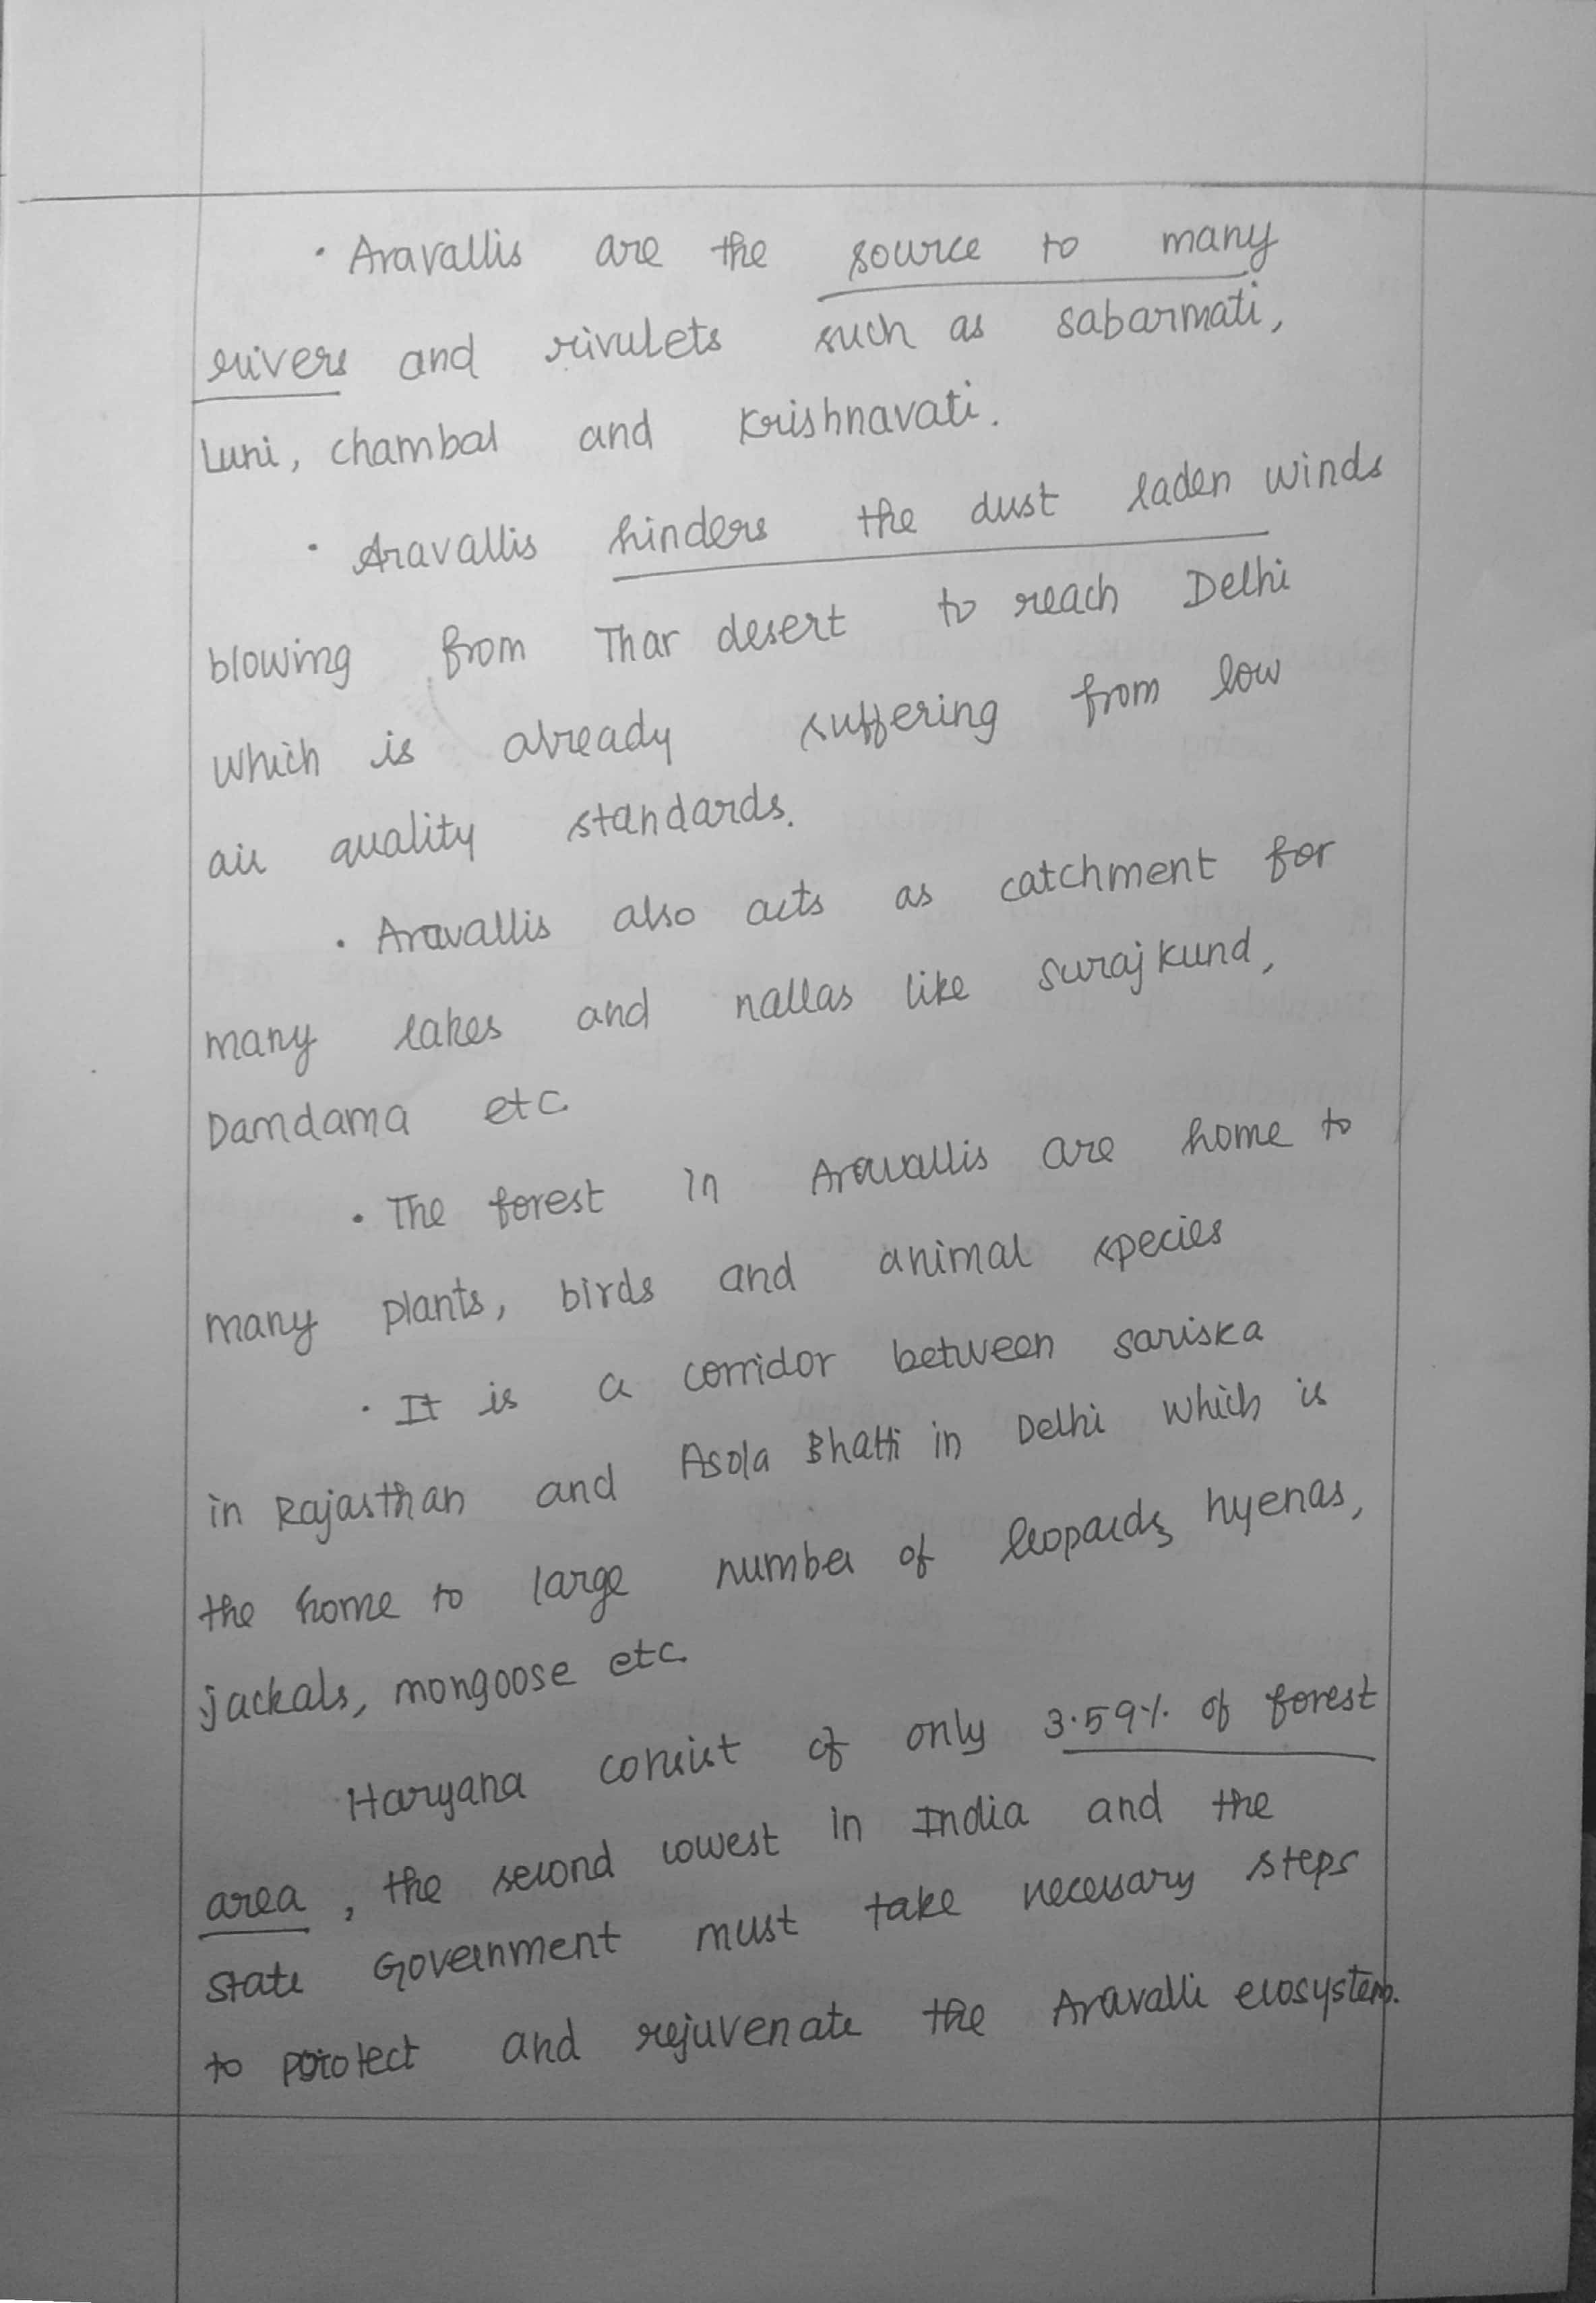 · Aravallis are the source to many
rivers and rivulets such as sabarmati,
Luni, chambal and Krishnavati.
· Aravallis hinders the dust laden winds
blowing from Thar desert to reach Delhi
which is already suffering from low
air quality standards.
· Aravallis also acts as catchment for
many lakes and nallas like surajkund,
Damdama etc
· The forest in Aravallis are home to
many plants, birds and animal species
· It is a corridor between sariska
in Rajasthan and Asola Bhatti in Delhi which is
the home to large number of leopards, hyenas,
jackals, mongoose etc.
Haryana consist of only 3.59% of forest
area, the second lowest in India and the
state Government must take necessary steps
to protect and rejuvenate the Aravalli ecosystem.